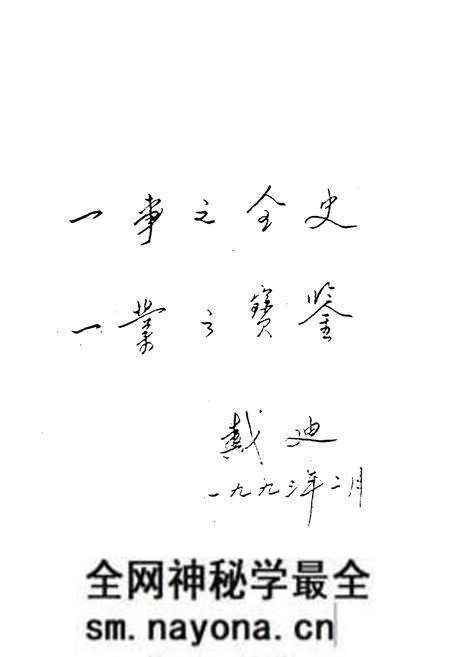 一事之全史
一業之寶鉴
戴迪
一九九三年二月
全网神秘学最全
sm.nayona.cn